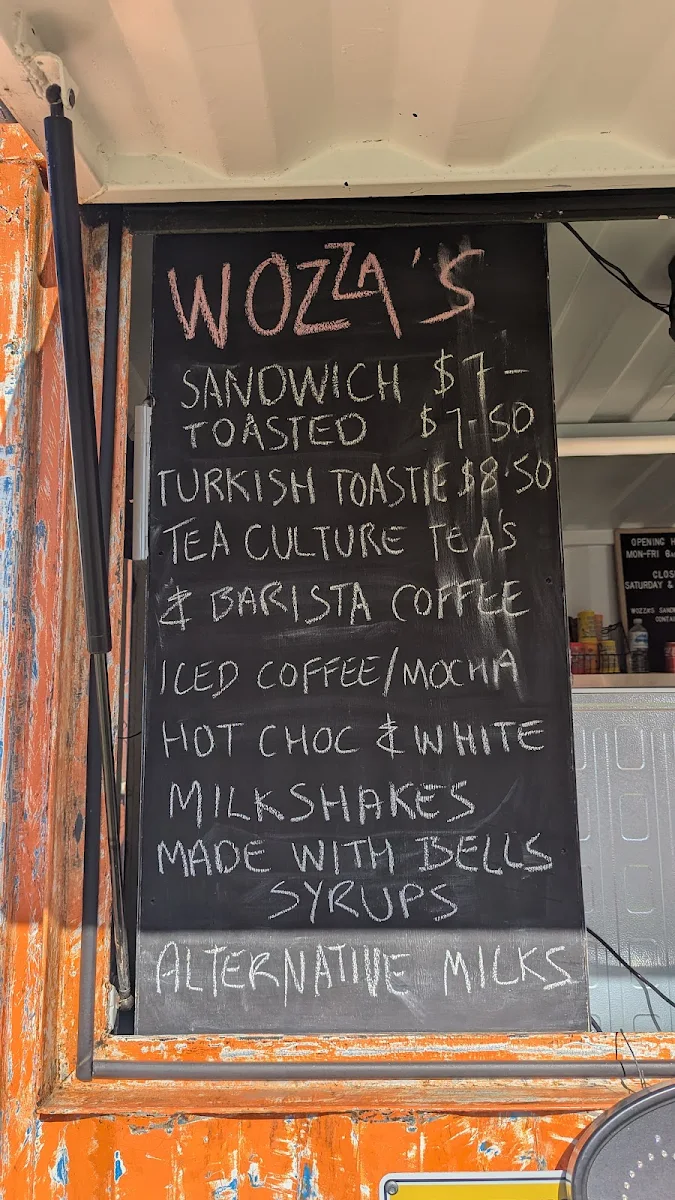 WOZZA'S
SANDWICH $7-
TOASTED $7-50
TURKISH TOASTIE $8'50
TEA CULTURE TEA'S
& BARISTA COFFEE
ICED COFFEE/MOCHA
HOT CHOC & WHITE
MILKSHAKES
MADE WITH BELLS
SYRUPS
ALTERNATIVE MILKS
OPENING
MON-FRI
SATURDAY &